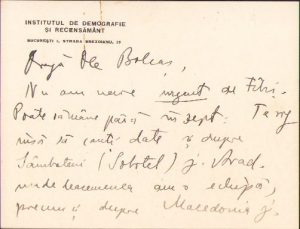 INSTITUTUL DE DEMOGRAFIE
ȘI RECENSĂMÂNT
BUCUREȘTI I, STRADA BREZOIANU,
Dragă Dle Bolcaș,
Nu am nevoe urgent de
Poate rămâne până în sept:
însă să cauți date și despre
Sâmbăteni (Sobotel) j. Arad.
unde deasemenea am o echipă,
precum și despre Macedonia j.